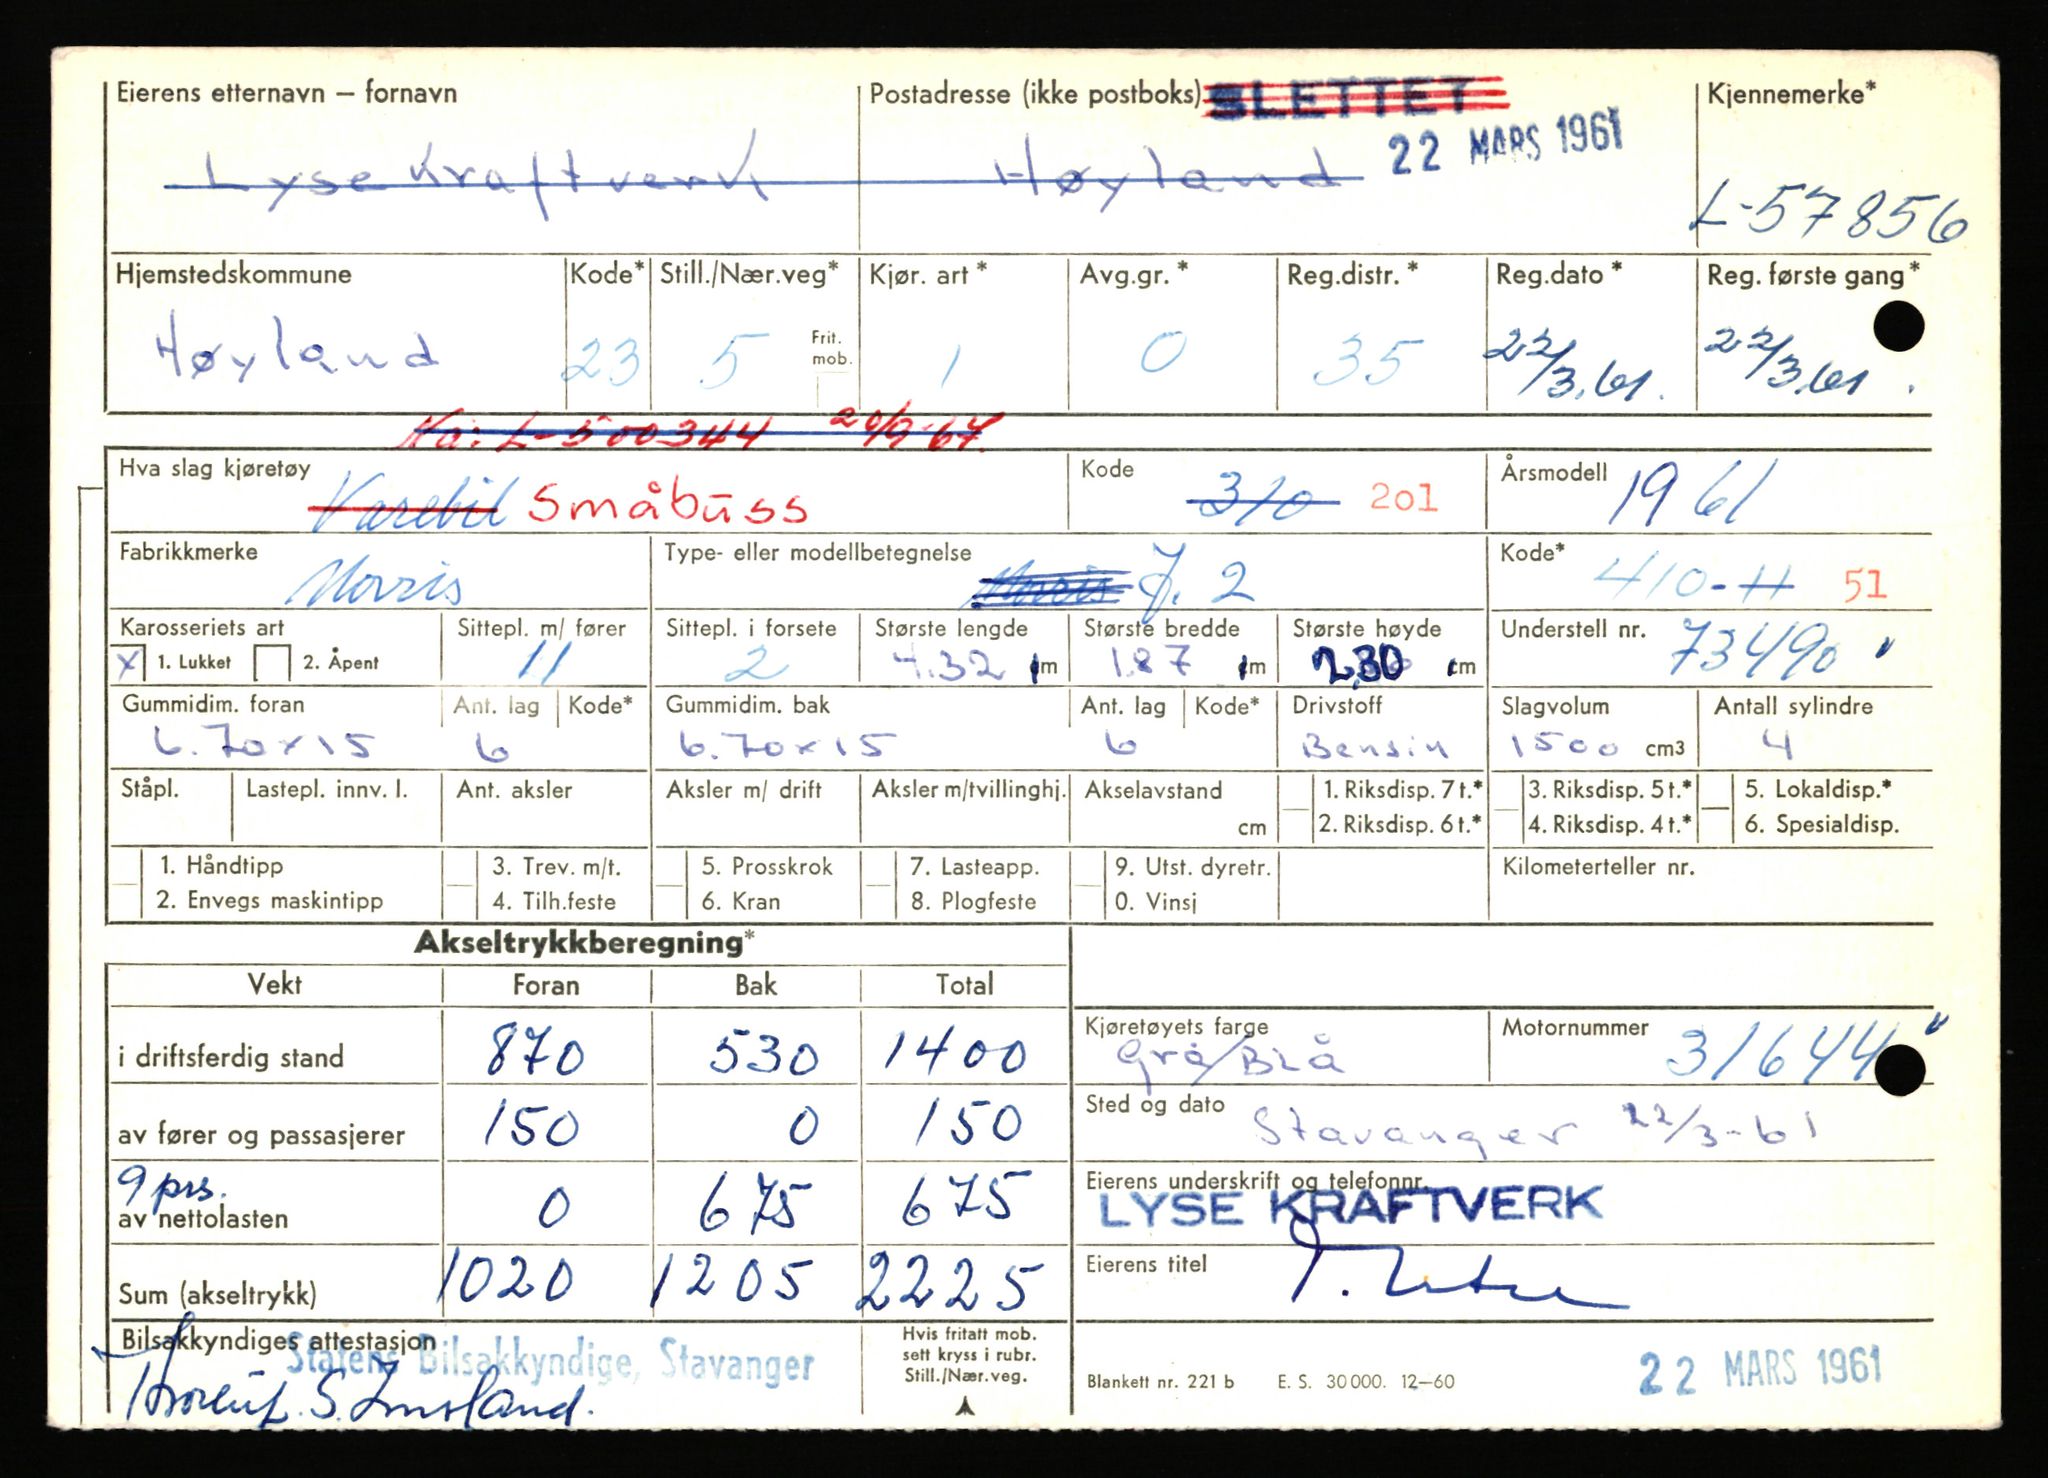 Eierens etternavn – fornavn
Postadresse (ikke postboks) SLETTET
Kjennemerke*
22 MARS 1961
Lyse Kraftverk Høyland
L-57856
Hjemstedskommune Kode* Still./Nær.veg* Kjør. art* Avg.gr.* Reg.distr.* Reg.dato* Reg. første gang*
Høyland 23 5 Frit. mob. 1 0 35 22/3.61. 22/3.61.
Nå: L-500344 20/9-67.
Hva slag kjøretøy Varebil Småbuss Kode 310 201 Årsmodell 1961
Fabrikkmerke Morris Type- eller modellbetegnelse Morris J. 2 Kode* 410-11 51
Karosseriets art Sittepl. m/ fører Sittepl. i forsete Største lengde Største bredde Største høyde Understell nr.
X 1. Lukket 2. Åpent 11 2 4.32 m 1.87 m 2,30 cm 73490
Gummidim. foran Ant. lag Kode* Gummidim. bak Ant. lag Kode* Drivstoff Slagvolum Antall sylindre
6.70x15 6 6.70x15 6 Bensin 1500 cm3 4
Ståpl. Lastepl. innv. l. Ant. aksler Aksler m/ drift Aksler m/tvillinghj. Akselavstand cm
1. Riksdisp. 7 t.* 3. Riksdisp. 5 t.* 5. Lokaldisp.*
2. Riksdisp. 6 t.* 4. Riksdisp. 4 t.* 6. Spesialdisp.
1. Håndtipp 3. Trev. m/t. 5. Prosskrok 7. Lasteapp. 9. Utst. dyretr. Kilometerteller nr.
2. Envegs maskintipp 4. Tilh.feste 6. Kran 8. Plogfeste 0. Vinsj
Akseltrykkberegning*
Vekt Foran Bak Total
i driftsferdig stand 870 530 1400
av fører og passasjerer 150 0 150
9 prs.
av nettolasten 0 675 675
Sum (akseltrykk) 1020 1205 2225
Kjøretøyets farge Grå/Blå
Motornummer 31644
Sted og dato Stavanger 22/3-61
Eierens underskrift og telefonnr.
LYSE KRAFTVERK
Eierens titel
Bilsakkyndiges attestasjon
Statens Bilsakkyndige, Stavanger
Hvis fritatt mob.
sett kryss i rubr.
Still./Nær.veg.
Blankett nr. 221 b E. S. 30 000. 12–60
22 MARS 1961